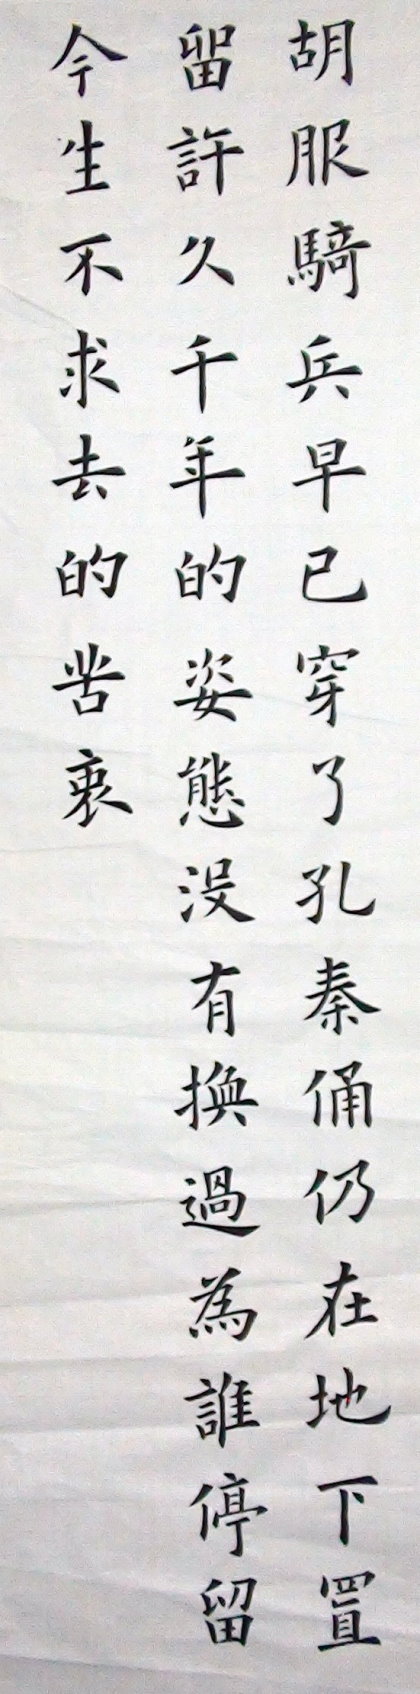 胡服騎兵早已穿了孔秦俑仍在地下置
留許久千年的姿態沒有換過為誰停留
今生不求去的苦衷